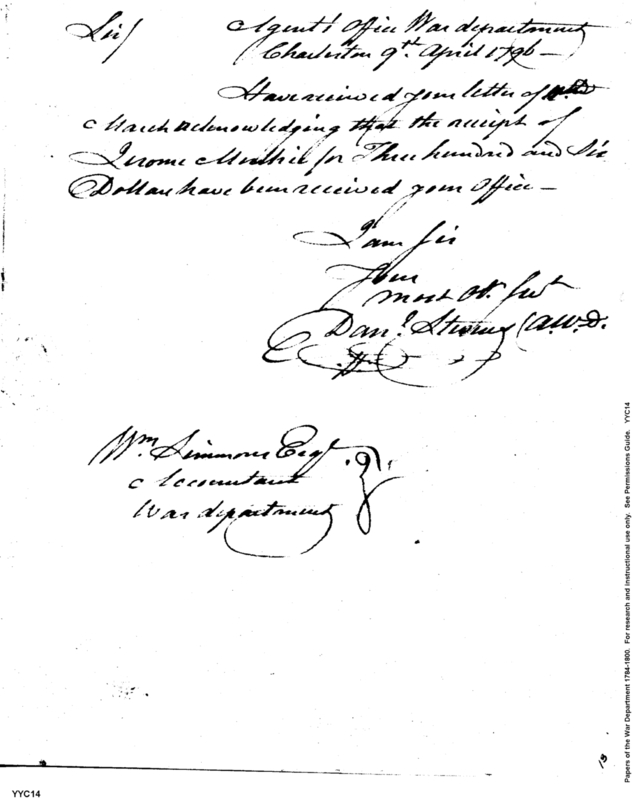 Sir/ Agent's Office War department
Charleston 9th. April 1796 —
Have received your letter of
March acknowledging that the receipt of
Jerome for Three hundred and Six
Dollars have been received your Office —
I am Sir
Your
most Ob. Servt
Danl. Stevens A.W.D.
Wm Simmons Esqr.
Accountant
War department
Papers of the War Department 1784-1800. For research and instructional use only. See Permissions Guide. YYC14
YYC14